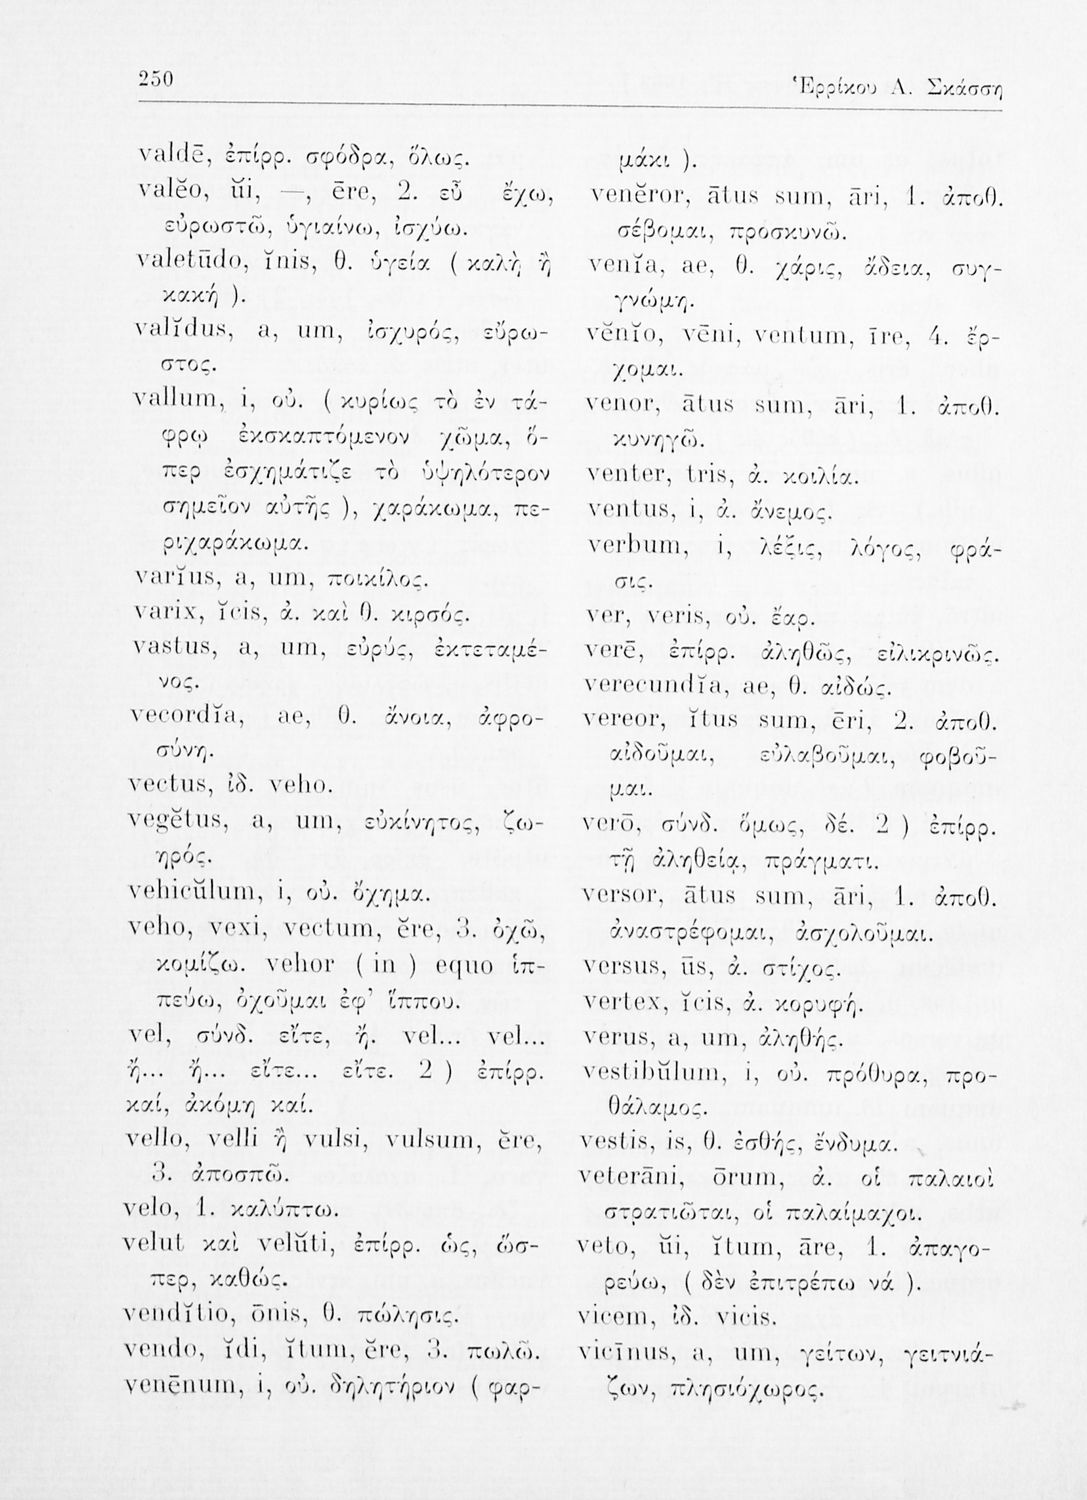 250
Ἑρρίκου Α. Σκάσση
valdē, ἐπίρρ. σφόδρα, ὅλως.
valĕo, ŭi, —, ēre, 2. εὖ ἔχω,
εὐρωστῶ, ὑγιαίνω, ἰσχύω.
valetūdo, ĭnis, θ. ὑγεία ( καλὴ ἢ
κακή ).
valĭdus, a, um, ἰσχυρός, εὔρω-
στος.
vallum, i, οὐ. ( κυρίως τὸ ἐν τά-
φρῳ ἐκσκαπτόμενον χῶμα, ὅ-
περ ἐσχημάτιζε τὸ ὑψηλότερον
σημεῖον αὐτῆς ), χαράκωμα, πε-
ριχαράκωμα.
varĭus, a, um, ποικίλος.
varix, ĭcis, ἀ. καὶ θ. κιρσός.
vastus, a, um, εὐρύς, ἐκτεταμέ-
νος.
vecordĭa, ae, θ. ἄνοια, ἀφρο-
σύνη.
vectus, ἰδ. veho.
vegĕtus, a, um, εὐκίνητος, ζω-
ηρός.
vehicŭlum, i, οὐ. ὄχημα.
veho, vexi, vectum, ĕre, 3. ὀχῶ,
κομίζω. vehor ( in ) equo ἱπ-
πεύω, ὀχοῦμαι ἐφ’ ἵππου.
vel, σύνδ. εἴτε, ἤ. vel... vel...
ἤ... ἤ... εἴτε... εἴτε. 2 ) ἐπίρρ.
καί, ἀκόμη καί.
vello, velli ἢ vulsi, vulsum, ĕre,
3. ἀποσπῶ.
velo, 1. καλύπτω.
velut καὶ velŭti, ἐπίρρ. ὡς, ὥσ-
περ, καθώς.
vendĭtio, ōnis, θ. πώλησις.
vendo, ĭdi, ĭtum, ĕre, 3. πωλῶ.
venēnum, i, οὐ. δηλητήριον ( φαρ-
μάκι ).
venĕror, ātus sum, āri, 1. ἀποθ.
σέβομαι, προσκυνῶ.
venĭa, ae, θ. χάρις, ἄδεια, συγ-
γνώμη.
vĕnĭo, vēni, ventum, īre, 4. ἔρ-
χομαι.
venor, ātus sum, āri, 1. ἀποθ.
κυνηγῶ.
venter, tris, ἀ. κοιλία.
ventus, i, ἀ. ἄνεμος.
verbum, i, λέξις, λόγος, φρά-
σις.
ver, veris, οὐ. ἔαρ.
verē, ἐπίρρ. ἀληθῶς, εἰλικρινῶς.
verecundĭa, ae, θ. αἰδώς.
vereor, ĭtus sum, ēri, 2. ἀποθ.
αἰδοῦμαι, εὐλαβοῦμαι, φοβοῦ-
μαι.
verō, σύνδ. ὅμως, δέ. 2 ) ἐπίρρ.
τῇ ἀληθείᾳ, πράγματι.
versor, ātus sum, āri, 1. ἀποθ.
ἀναστρέφομαι, ἀσχολοῦμαι.
versus, ūs, ἀ. στίχος.
vertex, ĭcis, ἀ. κορυφή.
verus, a, um, ἀληθής.
vestibŭlum, i, οὐ. πρόθυρα, προ-
θάλαμος.
vestis, is, θ. ἐσθής, ἔνδυμα.
veterāni, ōrum, ἀ. οἱ παλαιοὶ
στρατιῶται, οἱ παλαίμαχοι.
veto, ŭi, ĭtum, āre, 1. ἀπαγο-
ρεύω, ( δὲν ἐπιτρέπω νά ).
vicem, ἰδ. vicis.
vicīnus, a, um, γείτων, γειτνιά-
ζων, πλησιόχωρος.